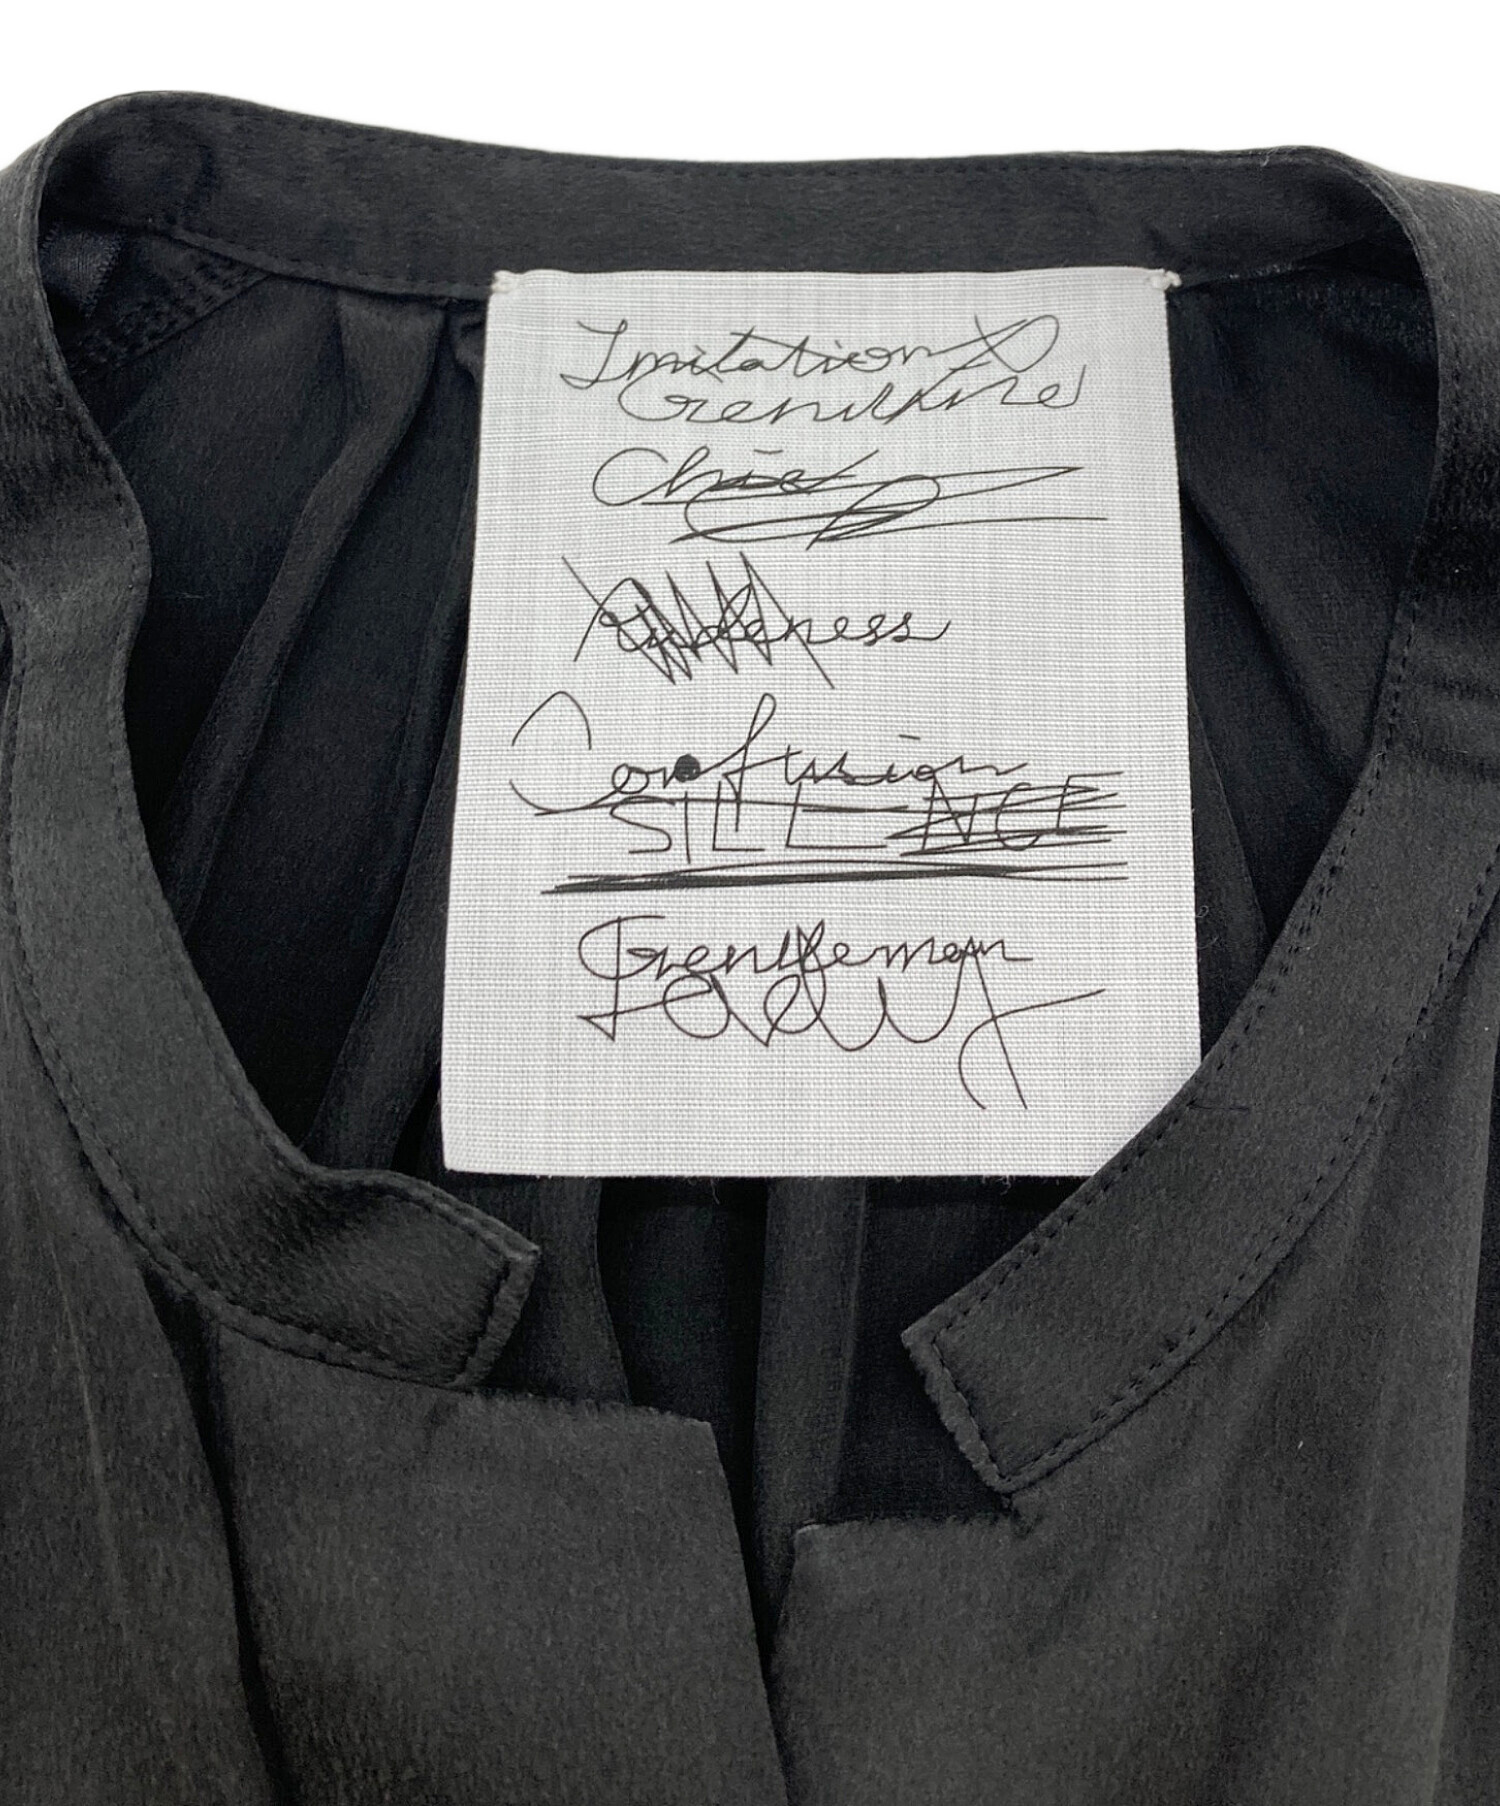 Imitation
Genuine
Chief
Rudeness
Confusion
SILLENCE
Gentleman